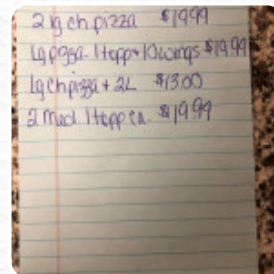 2 lg ch pizza $19.99
Lg pizza - 1 topp + 10 wings $19.99
Lg ch pizza + 2L $13.00
2 med 1 topp ea. $19.99